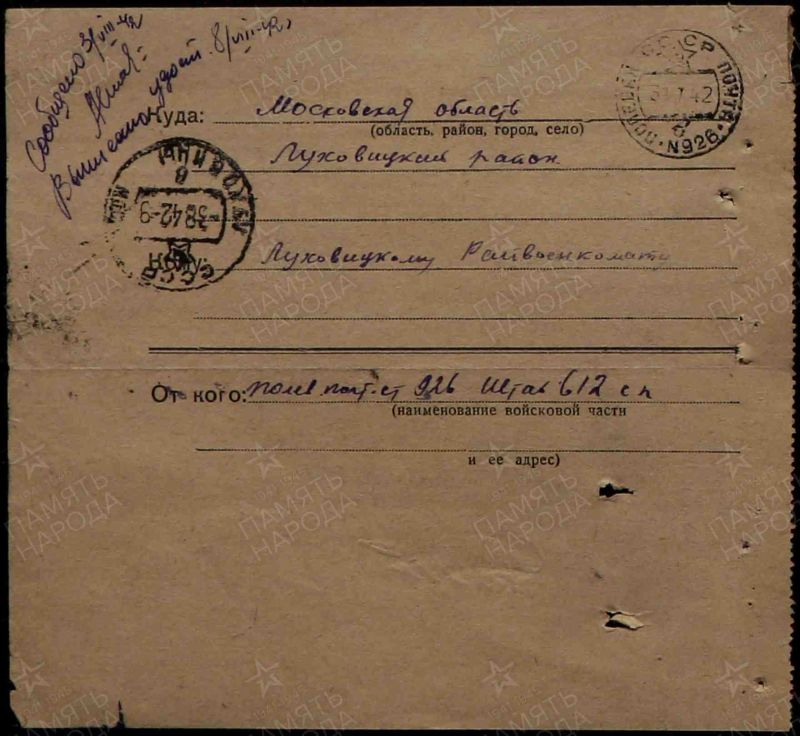 Сообщено 3/VIII-42
Выписано удост. 8/VIII-42
Куда: Московская область
(область, район, город, село)
Луховицкий район
Луховицкому Райвоенкомату
От кого: полев почт. ст 926 Штаб 612 сп
(наименование войсковой части
и ее адрес)
СССР
ПОЛЕВАЯ ПОЧТА
N926
42
ЛУХОВИЦЫ
СССР
3 8 42-9
ПАМЯТЬ
НАРОДА